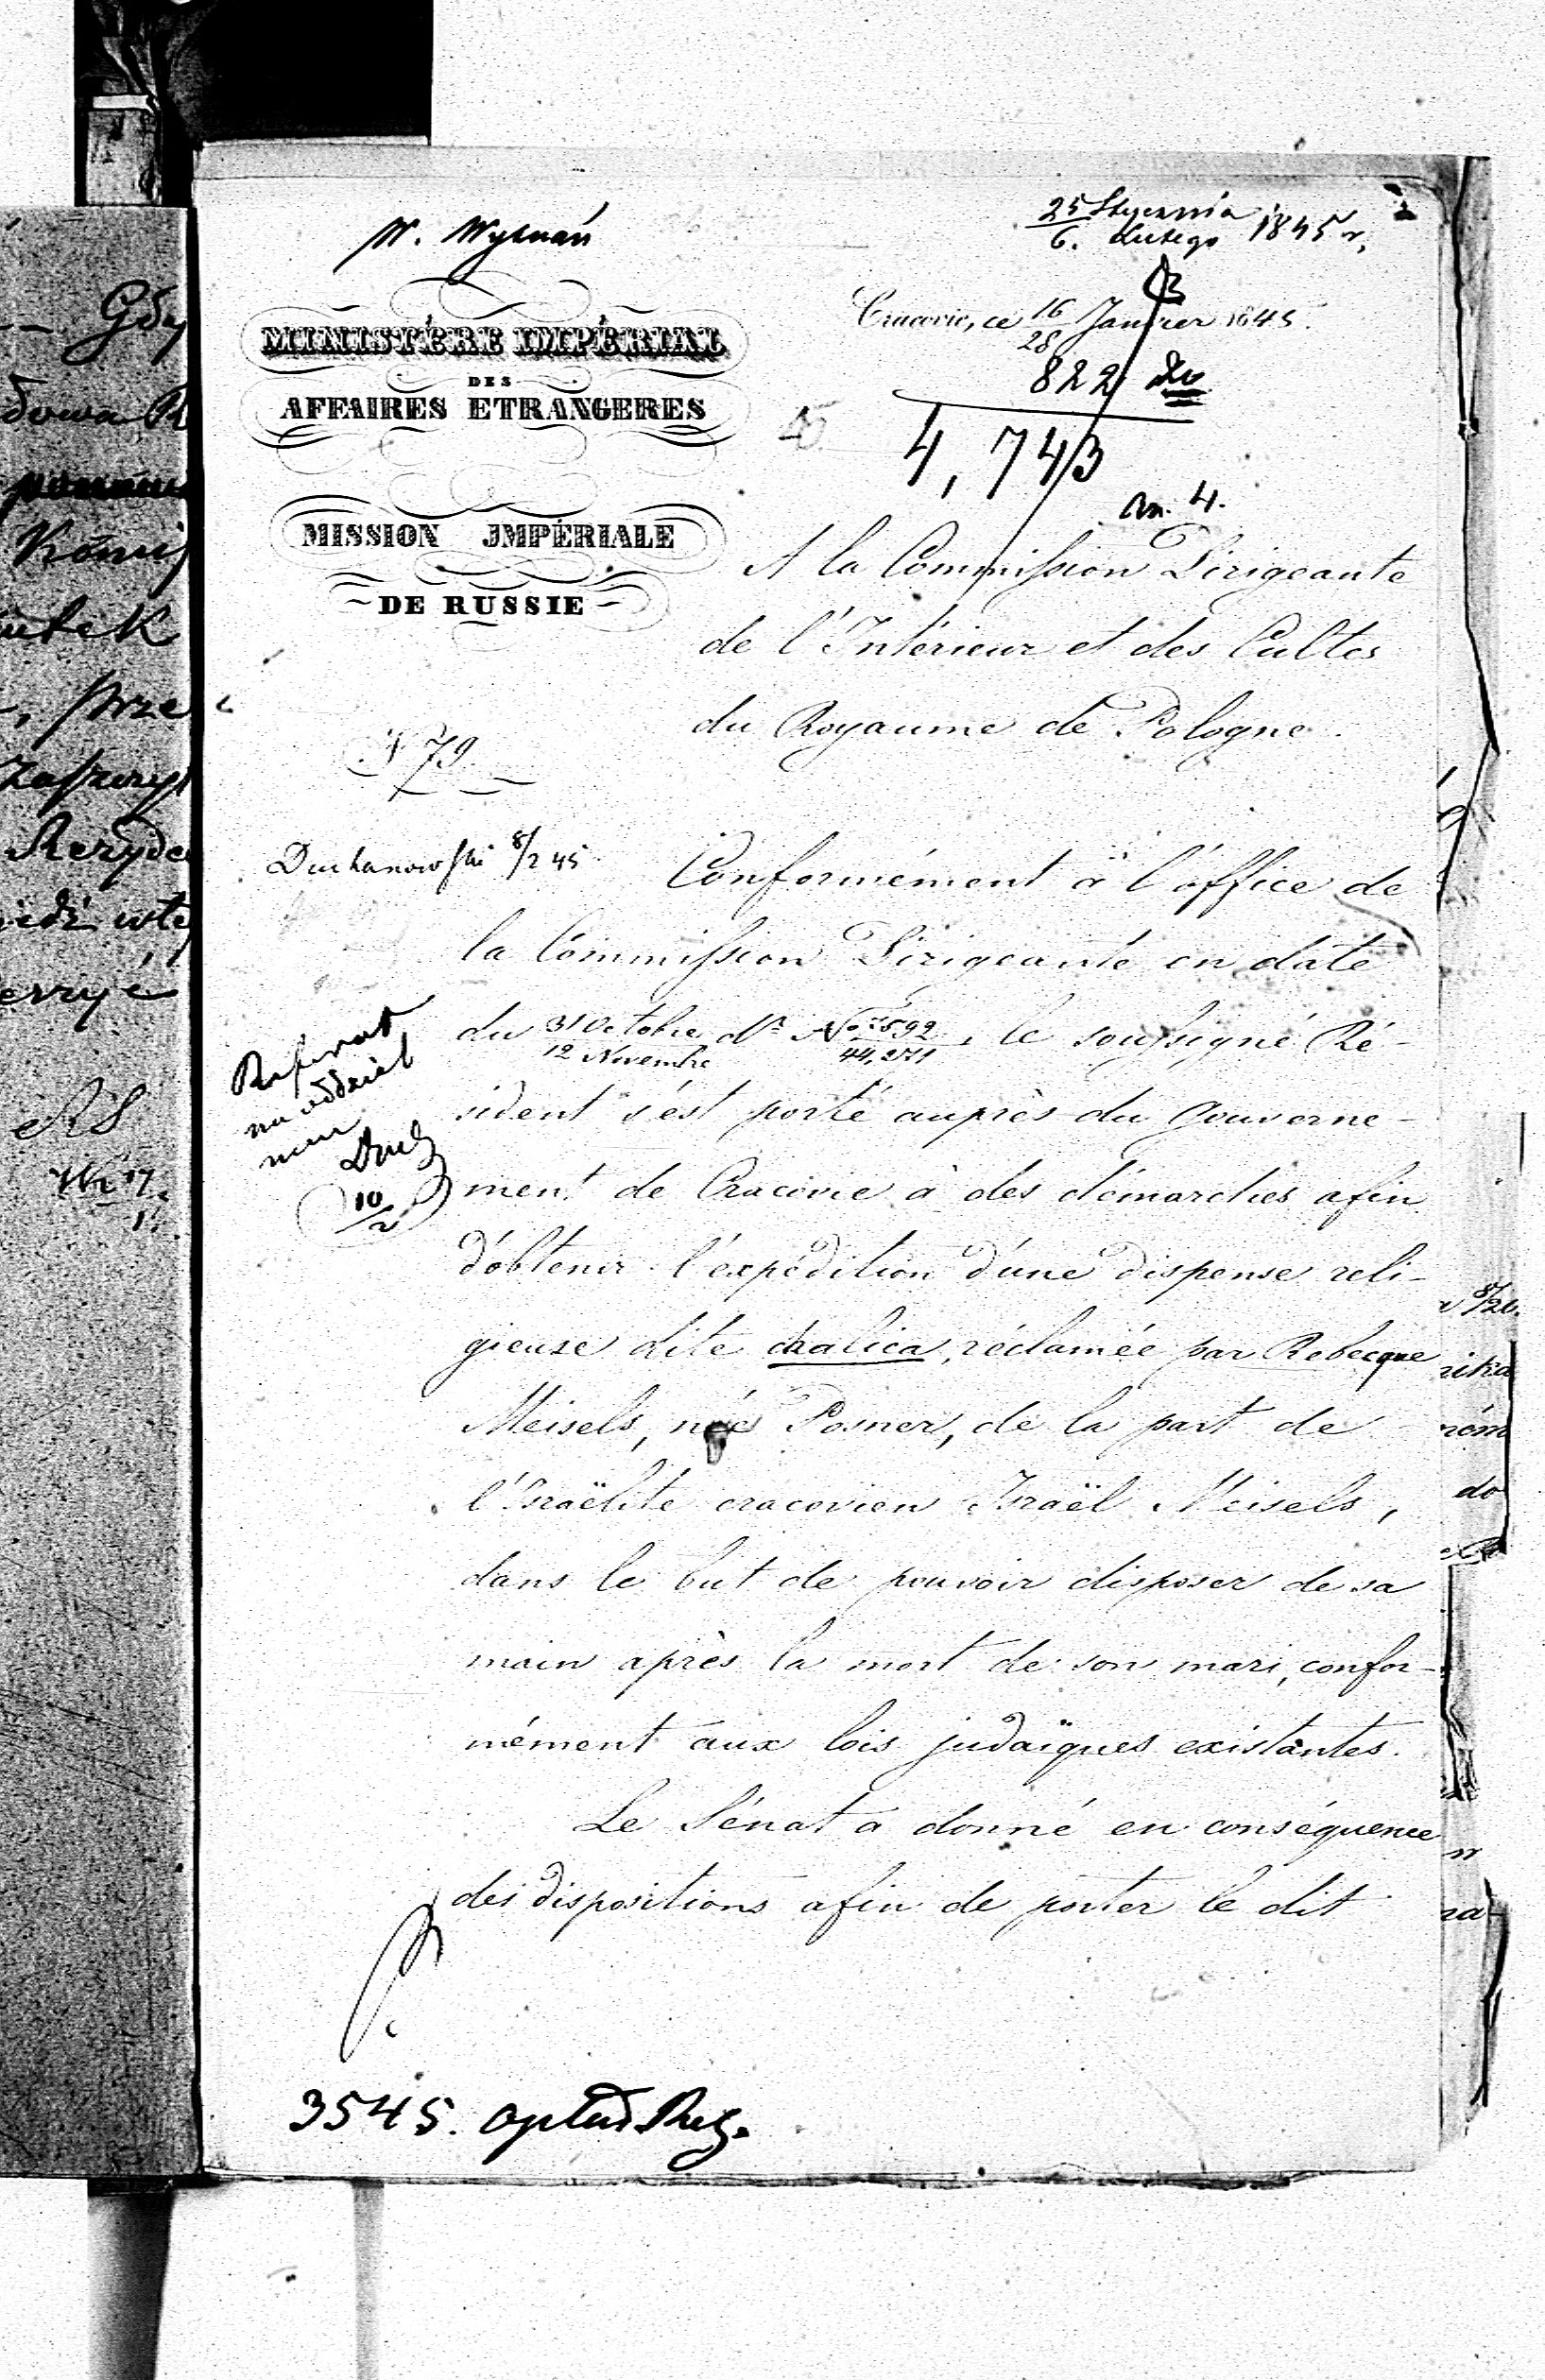 W. Wyznań
25 Stycznia
6. Lutego 1845 r.
MINISTÉRE IMPÉRIAL
DES
AFFAIRES ETRANGERES
MISSION JMPÉRIALE
DE RUSSIE
Cracovie, ce 16/28 Janvier 1845.
822
4,743
an. 4.
A la Commission Dirigeante
de l'Intérieur et des Cultes
du Royaume de Pologne.
N 79
Duchanowski 8/2 45
Conformément à l'office de
la Commission Dirigeante en date
du 31 Octobre / 12 Novembre dr No 7592 / 44,271, le soussigné Ré-
sident s'est porté auprès du Gouverne-
ment de Cracovie à des démarches afin
d'obtenir l'expédition d'une dispense reli-
gieuse dite chalica, réclamée par Rebecque
Meisels, née Posner, de la part de
l'Israëlite cracovien Israël Meisels,
dans le but de pouvoir disposer de sa
main après la mort de son mari, confor-
mément aux lois judaïques existantes.
Le Sénat a donné en conséquence
des dispositions afin de porter le dit
Referent
na oddziel
10/2
3545.
Gdy
dowa
przez